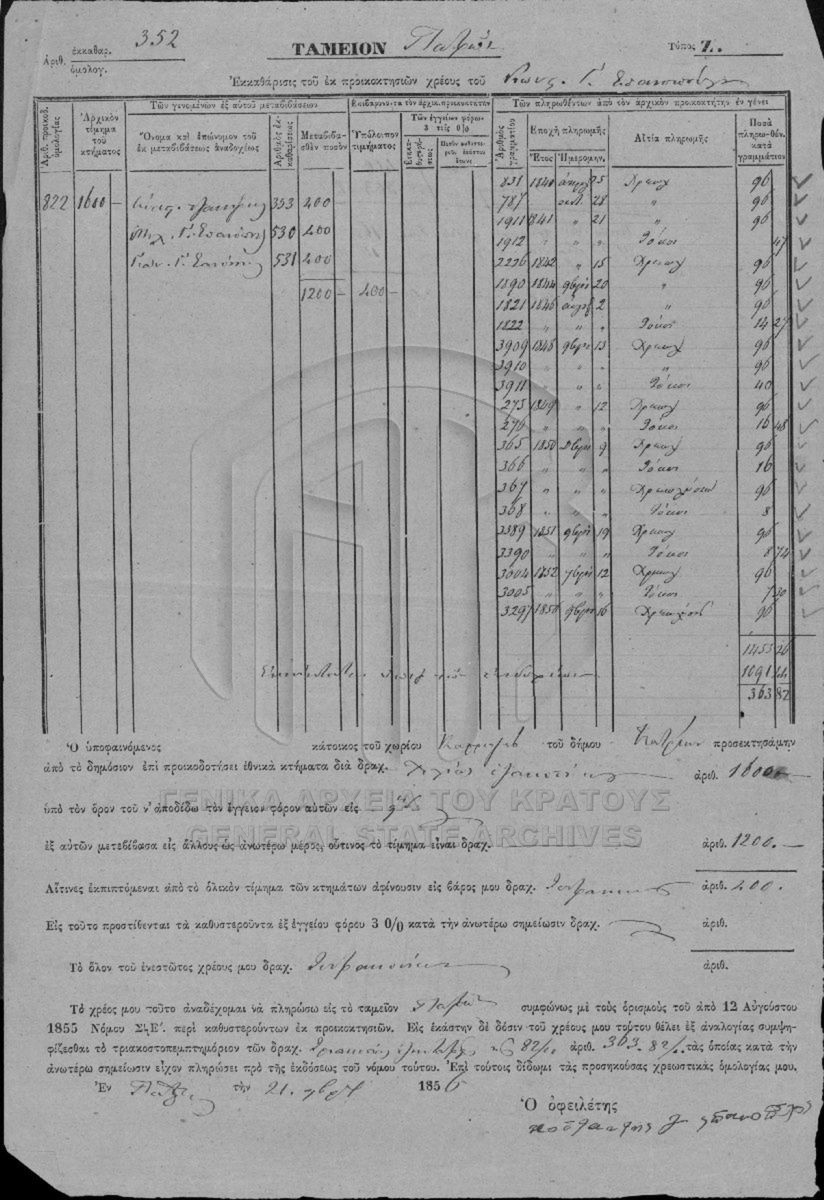 Ἀριθ. ἐκκαθαρ. ὁμολογ. 352 ΤΑΜΕΙΟΝ Πατρῶν Τύπος Ζ.
Ἐκκαθάρισις τοῦ ἐκ προικοκτησιῶν χρέους τοῦ Κωνς. Γ.
Ἀριθ. προικοδ. ὁμολογίας
Ἀρχικὸν τίμημα τοῦ κτήματος
Τῶν γενομένων ἐξ αὐτοῦ μεταβιβάσεων
Ὄνομα καὶ ἐπώνυμον τοῦ ἐκ μεταβιβάσεως ἀναδοχέως
Ἀριθμὸς ἐκκαθαρίσεως
Μεταβιβασθὲν ποσὸν
Ἐπιβαρύνοντα τὸν ἀρχικ. προικοκτήτην
Ὑπόλοιπον τιμήματος
Τῶν ἐγγείων φόρων 3 τοῖς 0/0
Τῶν πληρωθέντων ἀπὸ τὸν ἀρχικὸν προικοκτήτην ἐν γένει
Ἀριθμὸς γραμματίου
Ἐποχὴ πληρωμῆς
Ἔτος Ἡμερομην.
Αἰτία πληρωμῆς
Ποσὰ πληρωθέν. κατὰ γραμμάτιον
831 1840 25 Χρεωλ 96
787 " ὀκτ. 28 " 96
1911 1841 " 21 " 96
1912 " " " Τόκοι 47
2226 1842 " 15 Χρεωλ 96
1890 1844 9βρίου 20 " 96
1821 1846 2 " 96
1822 " " " Τόκοι 14 27
3909 1848 9βρίου 13 Χρεωλ 96
3910 " " " " 96
3911 " " " Τόκοι 40
275 1849 " 12 Χρεωλ 96
276 " " " Τόκοι 16 48
365 1850 9 Χρεωλ 96
366 " " " Τόκοι 16
367 " " " 96
368 " " " Τόκοι 8
3389 1851 9βρίου 19 Χρεωλ 96
3390 " " " Τόκοι 8 74
3004 1852 9βρίου 12 Χρεωλ 96
3005 " " " Τόκοι 7 30
3297 1853 9βρίου 16 96
822 1600 – 353 400
530 400
531 400
1200 – 400 –
1455 26
1091 44
363 82
Ὁ ὑποφαινόμενος κάτοικος τοῦ χωρίου τοῦ δήμου Πατρέων προσεκτησάμην
ἀπὸ τὸ δημόσιον ἐπὶ προικοδοτήσει ἐθνικὰ κτήματα διὰ δραχ. Χιλίας ἑξακοσίας ἀριθ. 1600 –
ΓΕΝΙΚΑ ΑΡΧΕΙΑ ΤΟΥ ΚΡΑΤΟΥΣ
ὑπὸ τὸν ὅρον τοῦ ν' ἀποδίδω τὸν ἔγγειον φόρον αὐτῶν εἰς
GENERAL STATE ARCHIVES
ἐξ αὐτῶν μετεβίβασα εἰς ἄλλους ὡς ἀνωτέρω μέρος, οὗτινος τὸ τίμημα εἶναι δραχ. ἀριθ. 1200. –
Αἵτινες ἐκπιπτόμεναι ἀπὸ τὸ ὁλικὸν τίμημα τῶν κτημάτων ἀφίνουσιν εἰς βάρος μου δραχ. Τετρακοσίας ἀριθ. 400.
Εἰς τοῦτο προστίθενται τὰ καθυστεροῦντα ἐξ ἐγγείου φόρου 3 0/0 κατὰ τὴν ἀνωτέρω σημείωσιν δραχ. ἀριθ.
Τὸ ὅλον τοῦ ἐνεστῶτος χρέους μου δραχ. Τετρακοσίας ἀριθ.
Τὸ χρέος μου τοῦτο ἀναδέχομαι νὰ πληρώσω εἰς τὸ ταμεῖον Πατρῶν συμφώνως μὲ τοὺς ὁρισμοὺς τοῦ ἀπὸ 12 Αὐγούστου
1855 Νόμου ΣϞΕ'. περὶ καθυστερούντων ἐκ προικοκτησιῶν. Εἰς ἑκάστην δὲ δόσιν τοῦ χρέους μου τούτου θέλει ἐξ ἀναλογίας συμψη-
φίζεσθαι τὸ τριακοστοπεμπτημόριον τῶν δραχ. ἀριθ. 363. 82/.. τὰς ὁποίας κατὰ τὴν
ἀνωτέρω σημείωσιν εἶχον πληρώσει πρὸ τῆς ἐκδόσεως τοῦ νόμου τούτου. Ἐπὶ τούτοις δίδωμι τὰς προσηκούσας χρεωστικὰς ὁμολογίας μου.
Ἐν Πάτραις τὴν 21 1856
Ὁ ὀφειλέτης